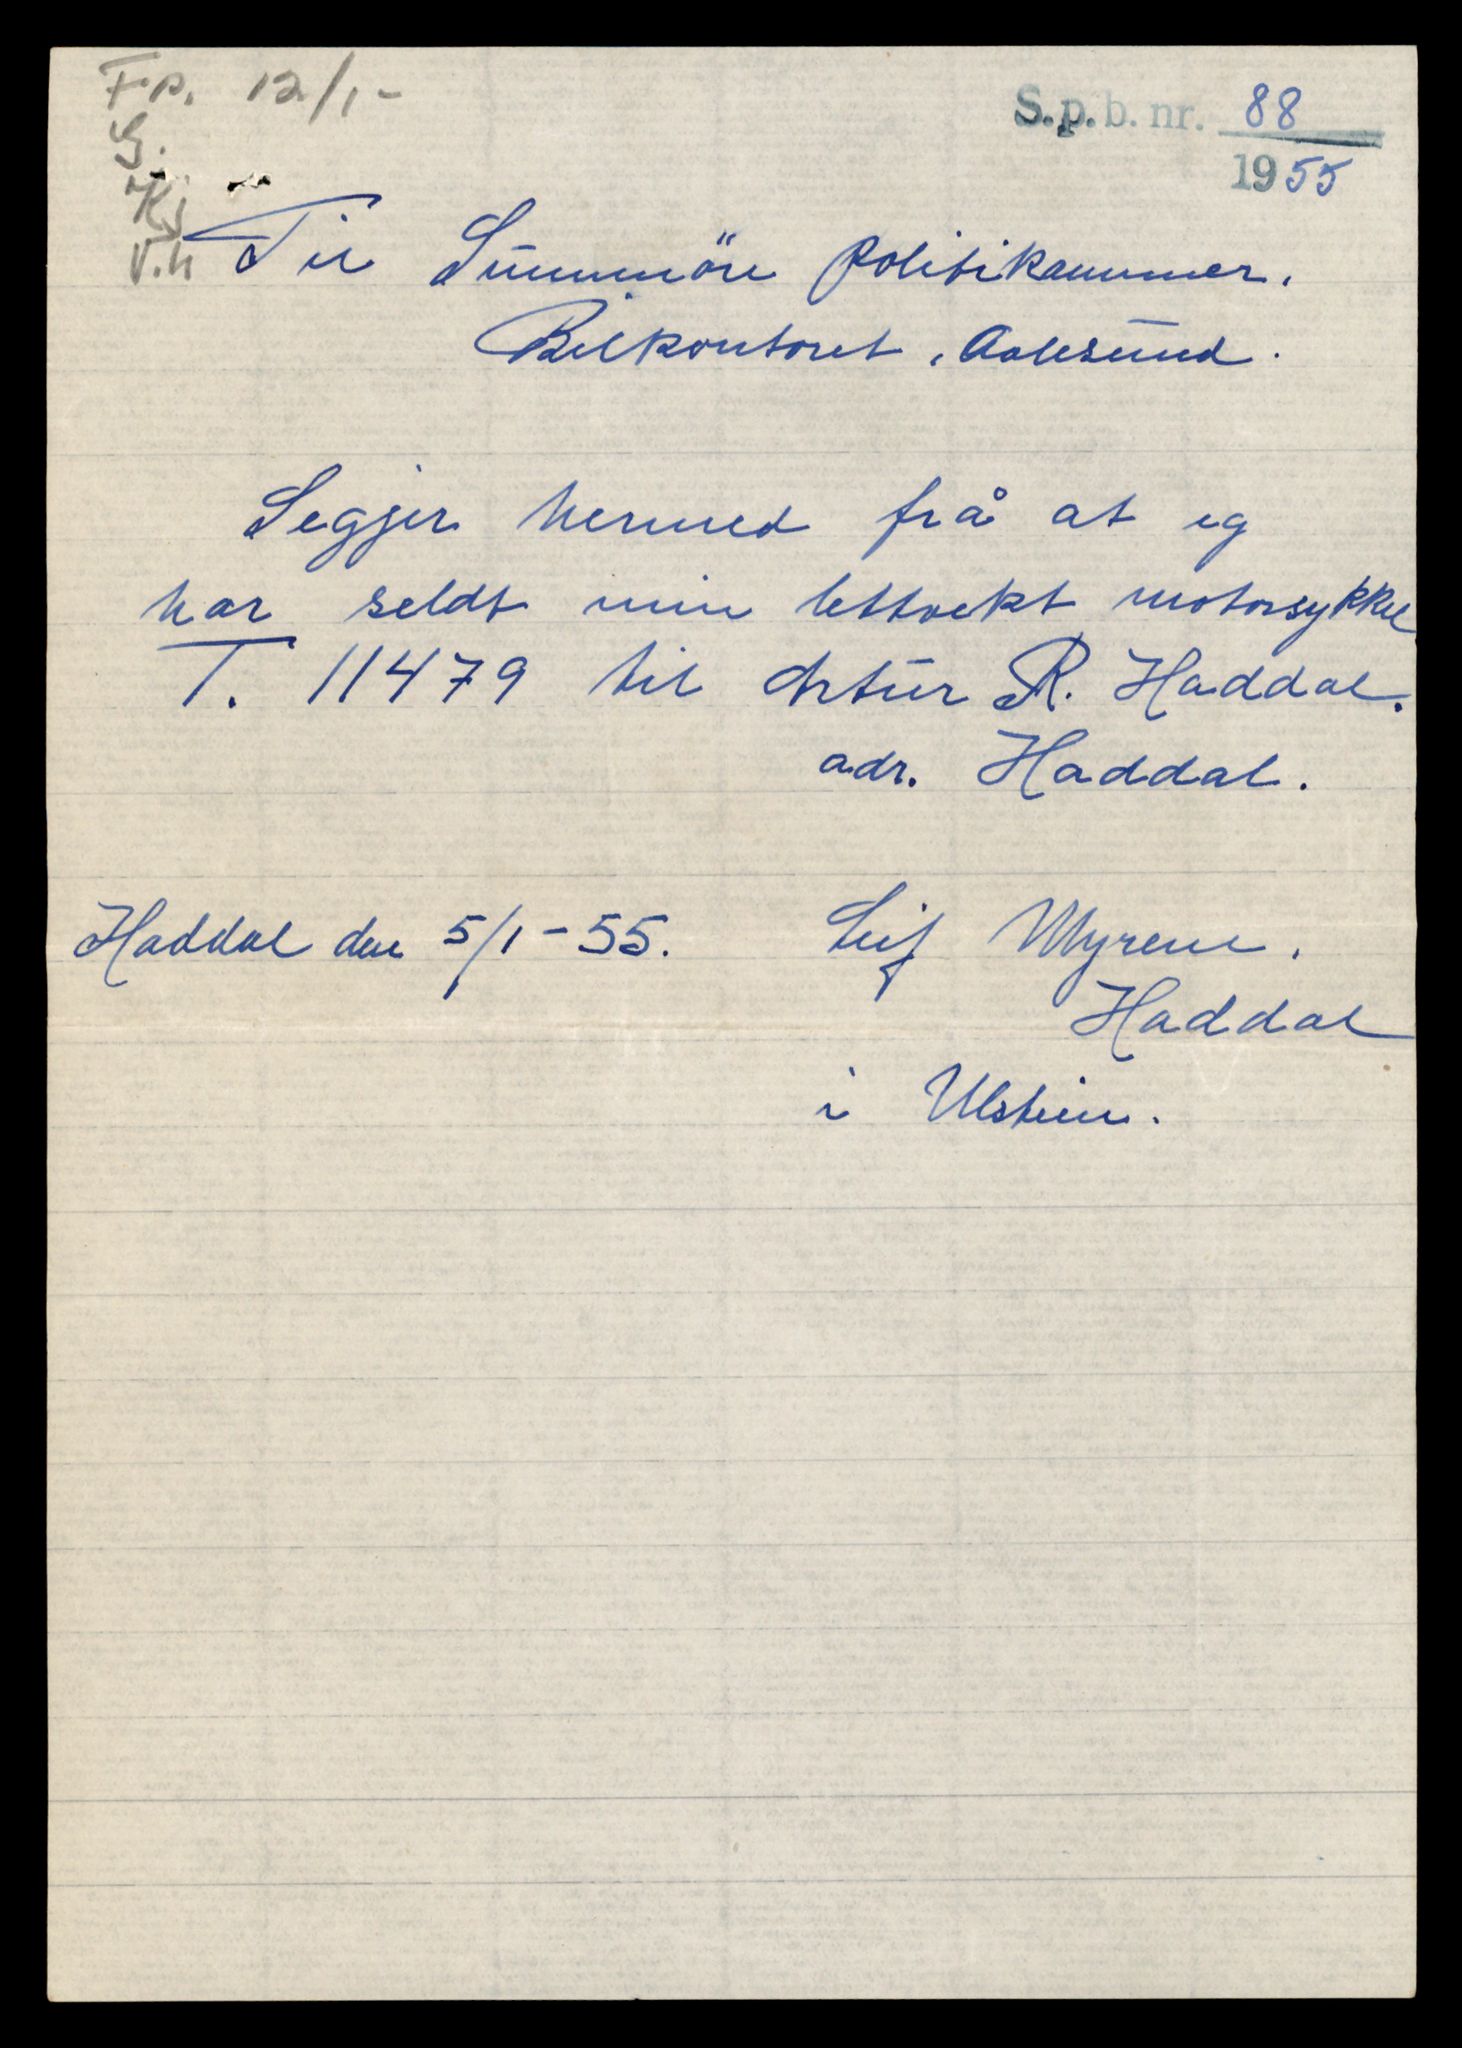 Fp. 12/1-
S.p.b. nr. 88
1955
G.
Kj
V.h
Til Sunnmöre Politikammer.
Bilkontoret, Aalesund.
Segjer hermed frå at eg
har seldt min lettvekt motorsykkel
T. 11479 til Artur R. Haddal.
adr. Haddal.
Haddal den 5/1-55. Leif Myrene.
Haddal
i Ulstein.